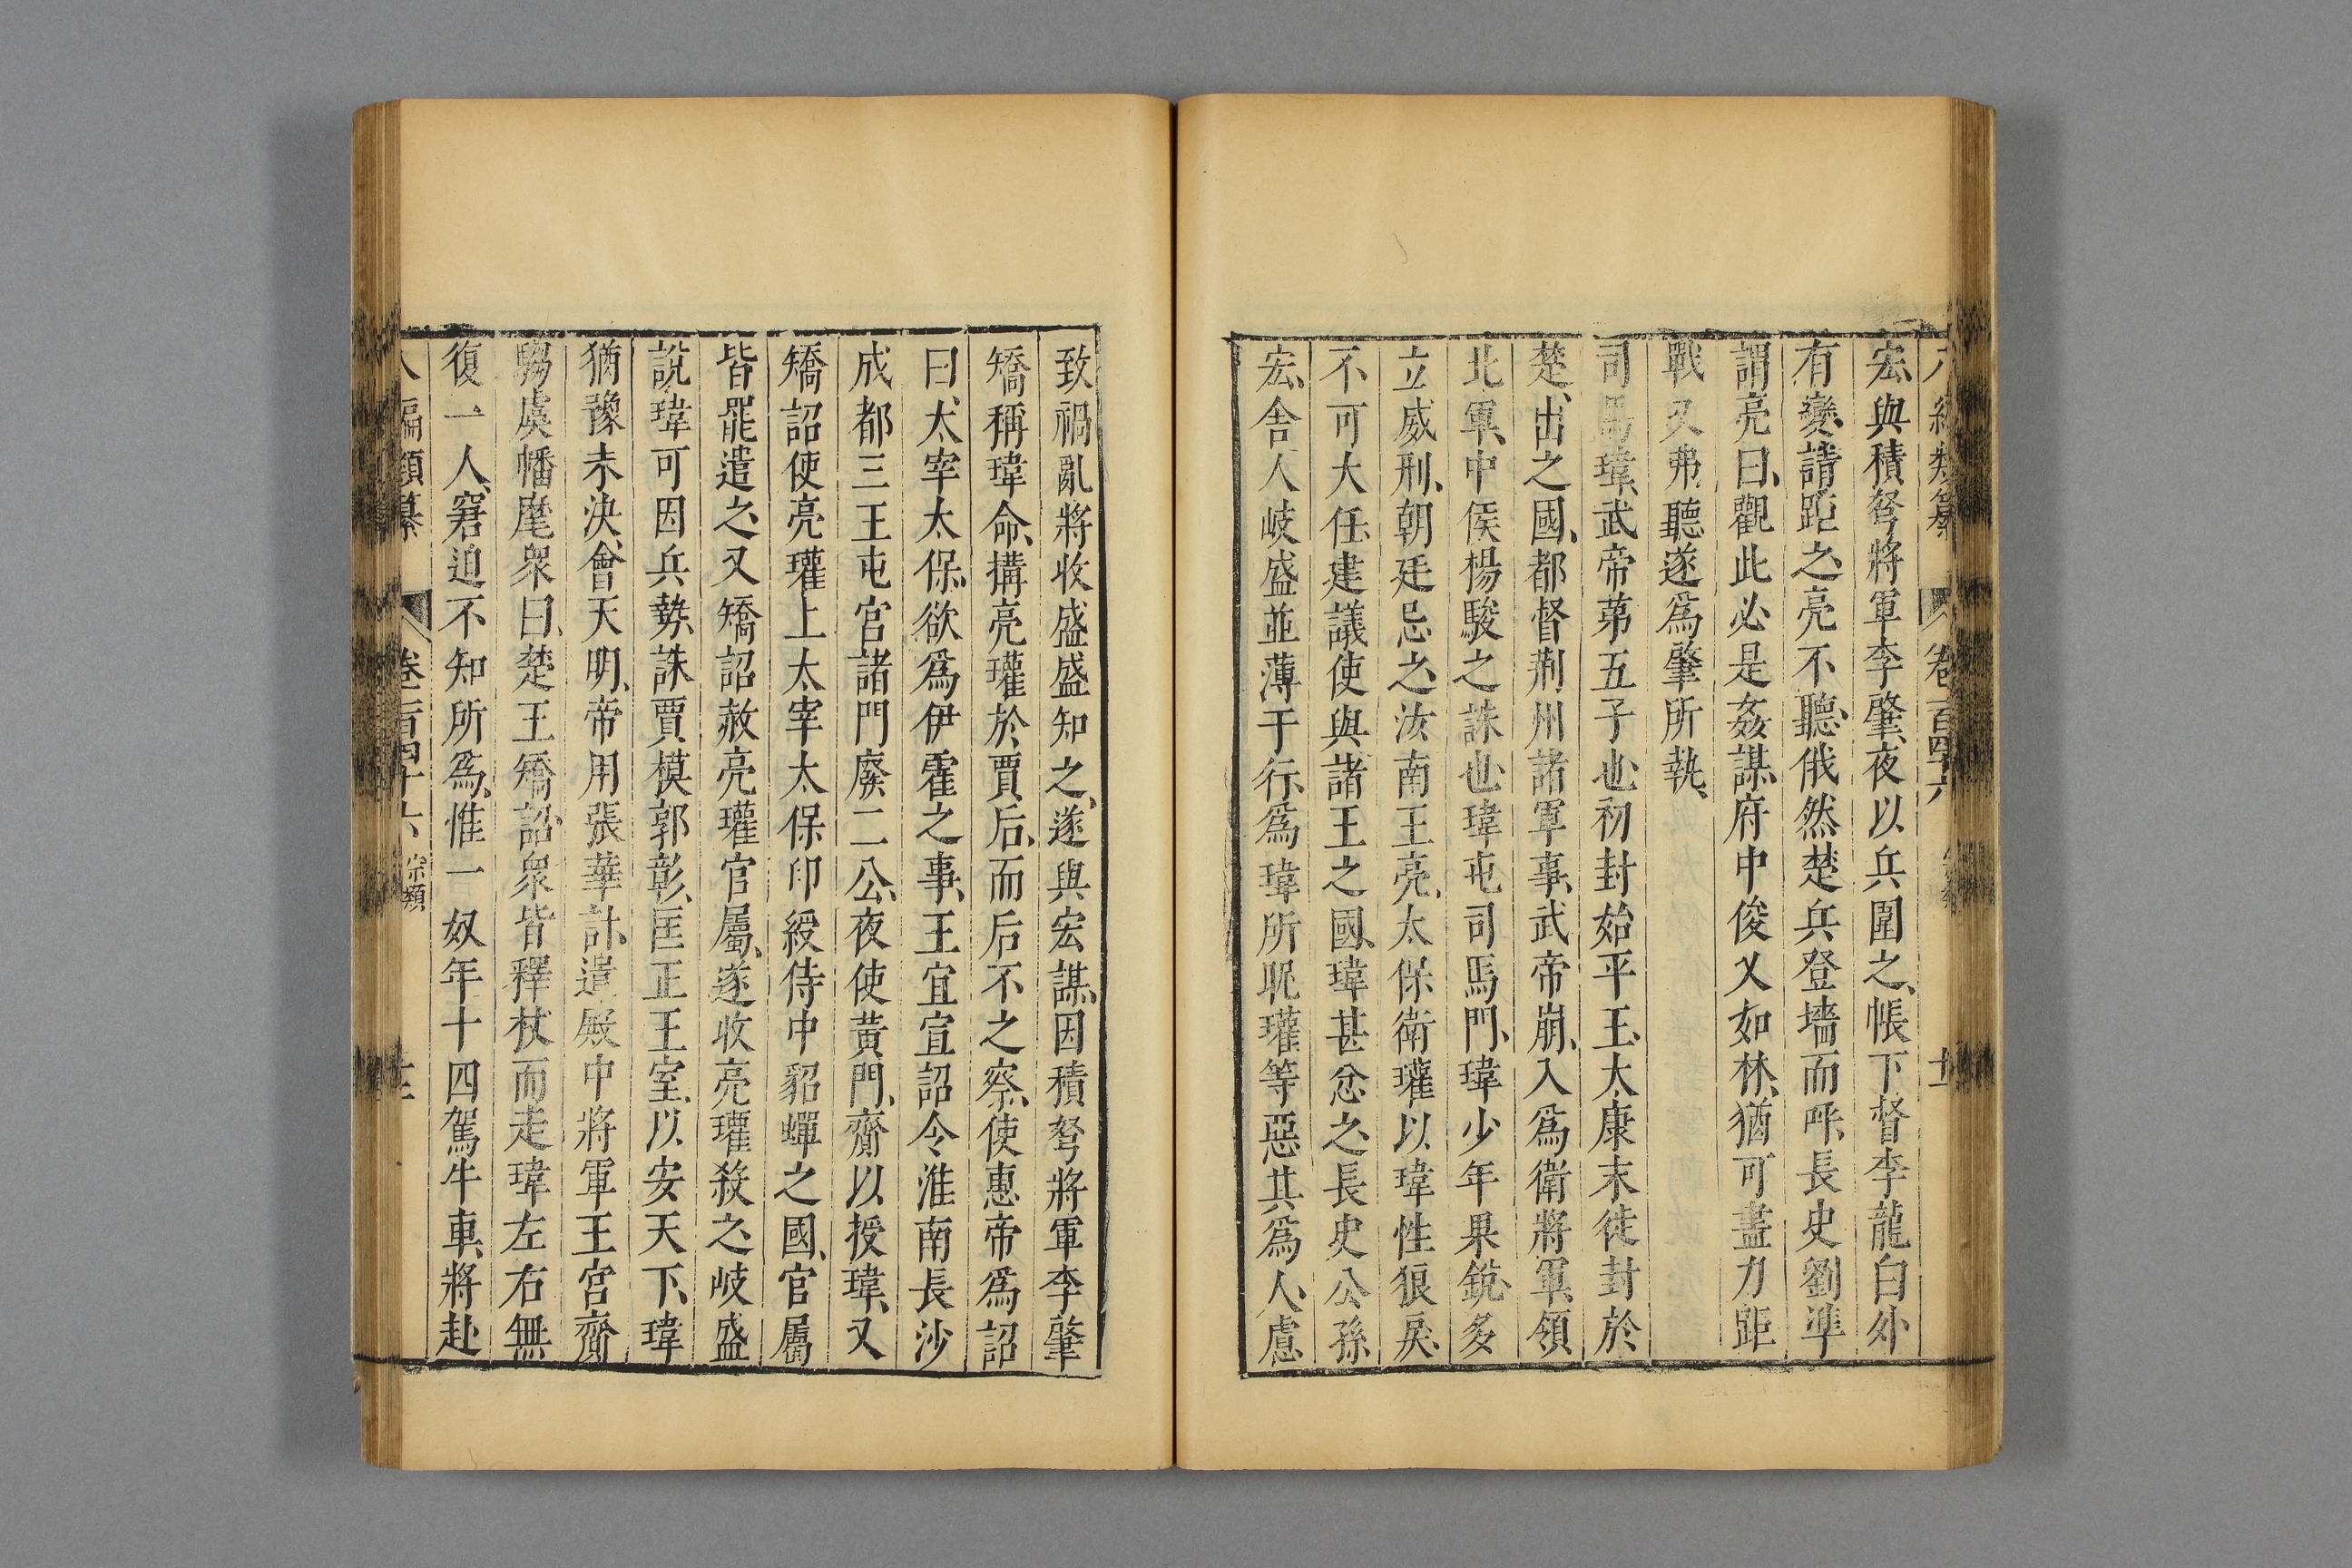 編類纂 卷一百四十六 十二
宏、與積弩將軍李肇、夜以兵圍之、帳下督李龍白外
有變、請距之、亮不聽、俄然楚兵登墻而呼、長史劉準
謂亮曰、觀此必是姦謀、府中俊乂如林、猶可盡力距
戰、又弗聽、遂爲肇所執、
司馬瑋、武帝第五子也、初封始平王、太康末徒封於
楚、出之國、都督荆州諸軍事、武帝崩、入爲衛將軍、領
北軍、中侯楊駿之誅也、瑋屯司馬門、瑋少年果銳、多
立威刑、朝廷忌之、汝南王亮、太保衛瓘以瑋性狠戾、
不可大任、建議使與諸王之國、瑋甚忿之、長史公孫
宏、舍人岐盛並薄于行、爲瑋所昵、瓘等惡其爲人、慮
致禍亂將收盛盛知之、遂與宏謀、因積弩將軍李肇
矯稱瑋命、搆亮瓘於賈后、而后不之察、使惠帝爲詔
曰、太宰太保、欲爲伊霍之事、王宜宣詔令淮南長沙
成都三王屯宮諸門廢二公、夜使黃門、齎以授瑋、又
矯詔使亮瓘上太宰太保印綬侍中貂蟬之國、官屬
皆罷遣之、又矯詔赦亮瓘官屬、遂收亮瓘殺之、岐盛
說瑋可因兵勢、誅賈模郭彰、匡正王室、以安天下、瑋
猶豫未決、會天明、帝用張華計、遣殿中將軍王宮齎
騶虞幡麾衆曰、楚王矯詔、衆皆釋杖而走瑋左右無
復一人、窘迫不知所爲、惟一奴年十四駕牛車、將赴
八編類纂 卷一百四十六 宗類 十二